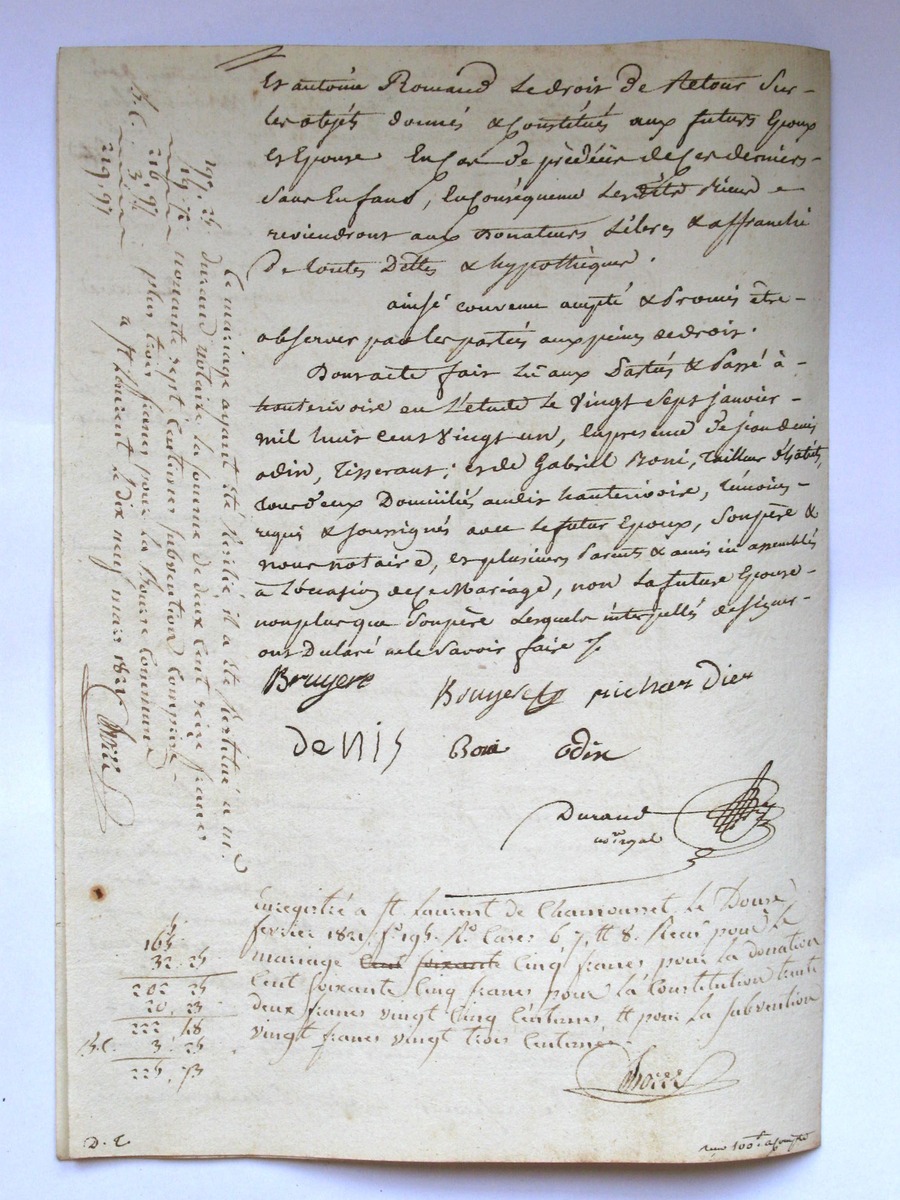 Et antoine Romand Le droit de Retour Sur
les objets donnés & Constitués aux futurs Epoux
et Epouse En Cas de prédécès de Ces derniers
Sans Enfans, En Conséquence Les dits
reviendront aux Donateurs Libres & affranchi
De toutes Dettes & hypothèques.
ainsi convenu accepté & Promis être
observer par les parties aux peines de droit.
Dont acte fait Lu aux Parties & Passé à
hauterivoire en L'etude Le Vingt Sept janvier
mil huit cent Vingt un, En presence de jean denis
odin, Tisserant; et de Gabriel Boni, Tailleur d'habits,
tous deux Domiciliés audit hauterivoire, témoins
requis & soussignés avec Le futur Epoux, Son père &
nous notaire, et plusieurs Parents & amis ici assemblés
à L'occasion de ce Mariage, non La future Epouse
non plus que Son père Lesquels interpellés de signer
ont Déclaré ne le Savoir faire
Bruyere
Bouyer
richardier
deNIS
Boni
odin
Durand
no.re royal
Enregistré a St Laurent de Chamousset Le Douze
fevrier 1821, fo 195. Ro Cases 6 7, et 8. Recu pour le
mariage cent soixante Cinq francs pour la donation
Cent Soixante Cinq francs pour la Constitution trente
deux francs vingt Cinq Centimes, et pour la Subvention
vingt francs vingt trois Centimes.
165
32. 25
202 25
20. 23
222 48
B.C. 3. 25
225, 73
D. E.
Le mariage ayant été il a été restitué a m.
durand notaire la somme de deux Cent seize francs
nonante sept Centimes subvention Comprise
plus trois francs pour la Bourse Commune
a St Laurent le dix neuf mars 1821
197. 25
19. 72
216. 97
B.C. 3.
219. 97